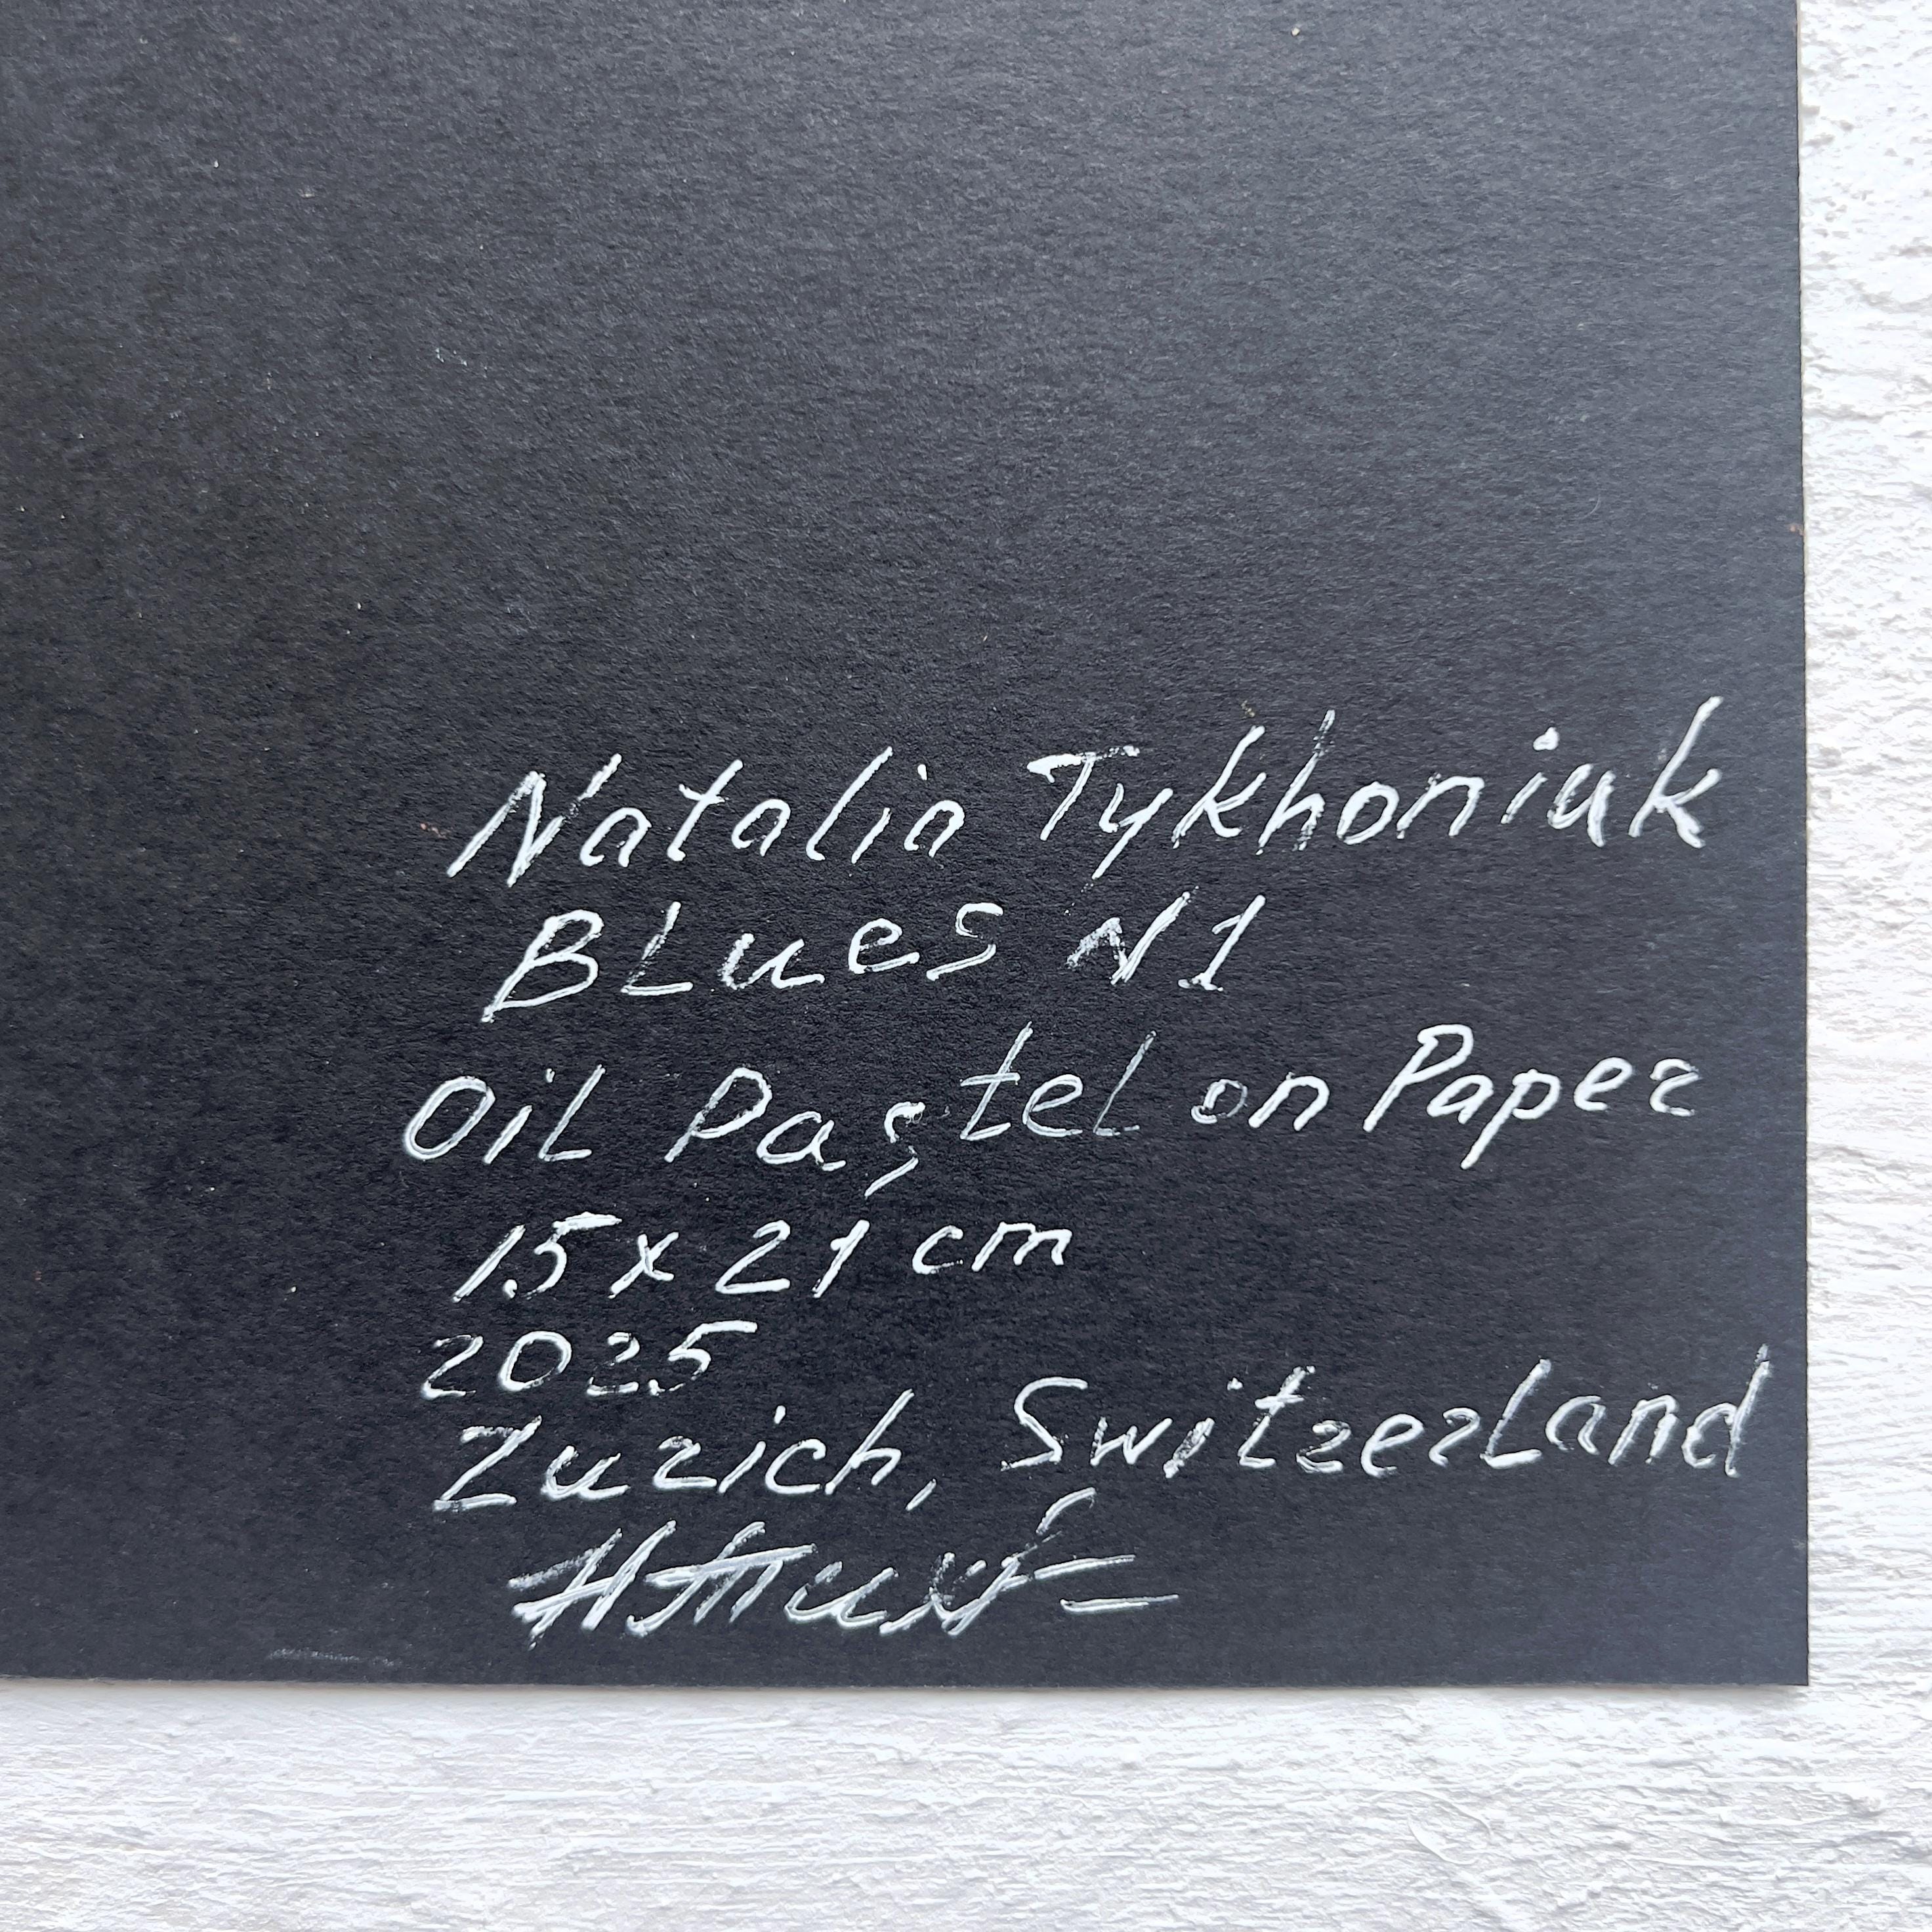 Natalia Tykhoniuk
Blues N1
Oil Pastel on Paper
15 x 21 cm
2025
Zurich, Switzerland